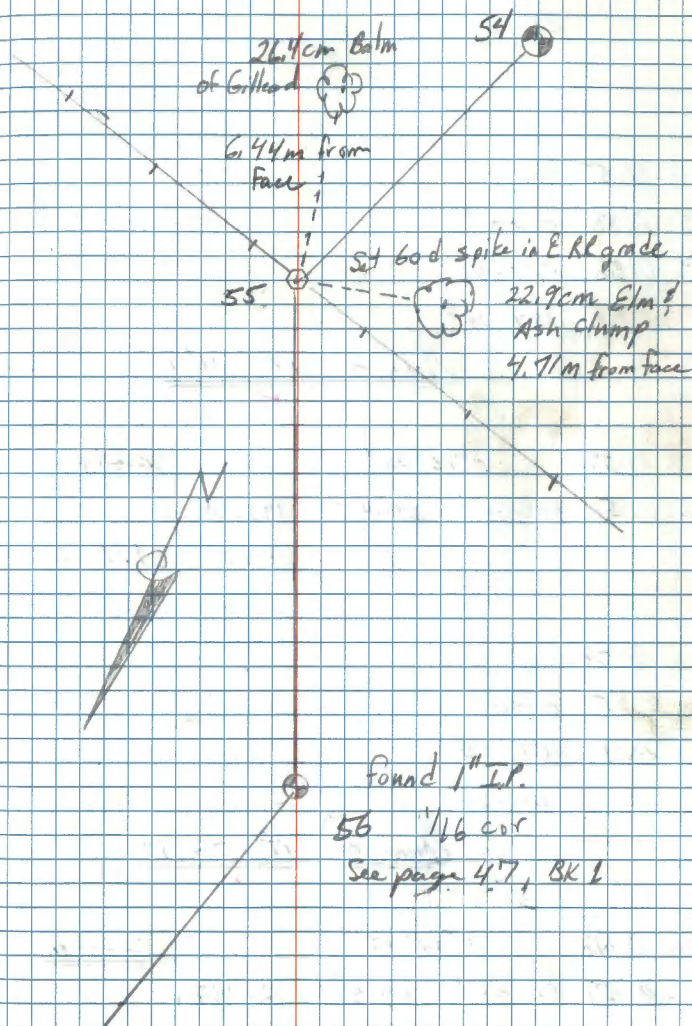 54
26.4cm Balm
of Gillead
6.44m from
Face
Set 60d spike in ℄ RR grade
55
22.9cm Elm &
Ash Clump
4.71m from face
N
found 1" I.P.
56 1/16 cor
See page 47, BK 1